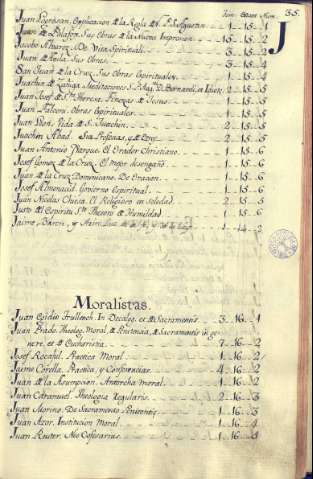 Tom. Estan. Num. 35.
J
Juan Explicacion de la Regla de N. P. S. Agustin 1..15..2
Juan de Palafox. Sus Obras de la Nueva Impresion 15..15..3
Jacobo Alvarez. De Vita Spirituali 3..15..2
Juan de Avila. Sus Obras 3..15..4
San Juan de la Cruz. Sus Obras Espirituales 1..15..4
Meditaciones
Juan Josef de Sta. Theresa. Finezas de Jesus 1..15..5
Juan Falconi. Obras Espirituales 1..15..5
Juan Vida de S. Joachin 1..15..5
Juachin Abad. Sus Profecias, 2..15..5
Juan Antonio Xarque. El Orador Christiano 1..15..6
Josef Gomez de la Cruz. El mejor desengaño 1..15..6
Juan de la Cruz Dominicano. De Oracion 1..15..6
Josef Almonacid. Govierno Espiritual 1..15..6
Juan Nicolas Chiesa. El Religioso en soledad 2..15..5
Justo de Espiritu Sto. Thesoro de Humildad 1..15..6
Jaime Baron, Luz de la 1..14..2
Moralistas.
Juan Egidio Trullench. In Decalog. et de Sacramentis 3..16..1
Juan Prado. Theolog. Moral, de Penitencia, de Sacramentis in ge-
nere, et de Eucharistia 7..16..2
Josef Rocafull. Practica Moral 1..16..2
Jaime Corella. Practica, y Conferencias 4..16..2
Juan de la Asumpcion. Antorcha moral 1..16..2
Juan Caramuel. Theologia Regularis 2..16..3
Juan Morino. De Sacramento Penitentiæ 1..16..3
Juan Azor. Institucion Moral 1..16..4
Juan Reuter. Neo Confesarius 1..16..4